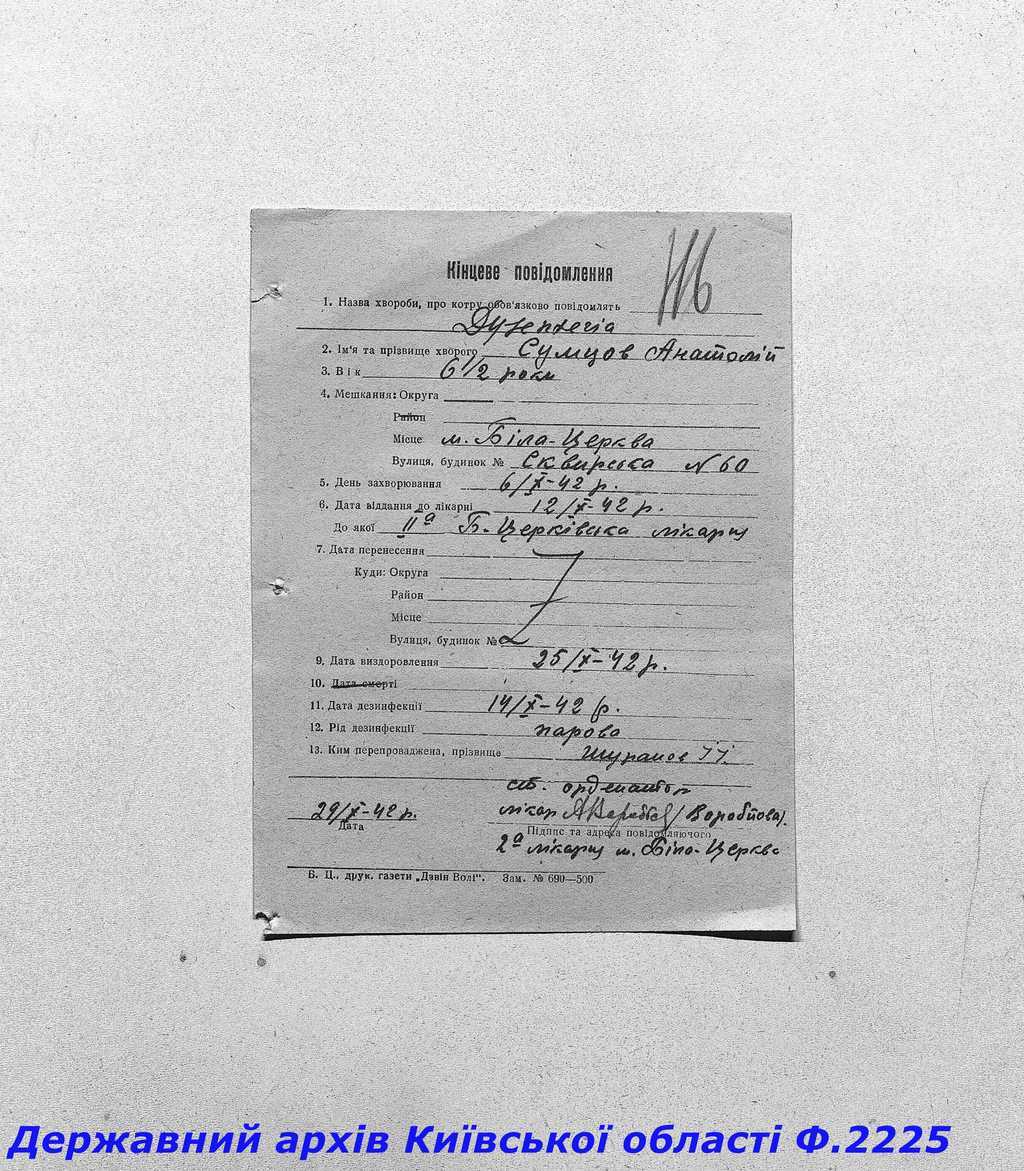 116
Кінцеве повідомлення
1. Назва хвороби, про котру обов'язково повідомлять
Дузентегіа
2. Ім'я та прізвище хворого Сумцов Анатолій
3. Вік 6 1/2 роки
4. Мешкання: Округа
Район
Місце м. Біла-Церква
Вулиця, будинок № Сквирська N 60
5. День захворювання 6/X-42 р.
6. Дата віддання до лікарні 12/X-42 р.
До якої IIа Б.-Церківська лікарня
7. Дата перенесення
Куди: Округа
Район
Місце
Вулиця, будинок №
9. Дата виздоровлення 25/X-42 р.
10. Дата смерті
11. Дата дезинфекції 14/X-42 р.
12. Рід дезинфекції парова
13. Ким перепроваджена, прізвище
ст. орденатор
29/X-42 р. лікар (Воробйова).
Дата Підпис та адреса повідомляючого
2а лікарня м. Біла-Церква
Б. Ц., друк. газети „Дзвін Волі". Зам. № 690—500
Державний архів Київської області Ф.2225